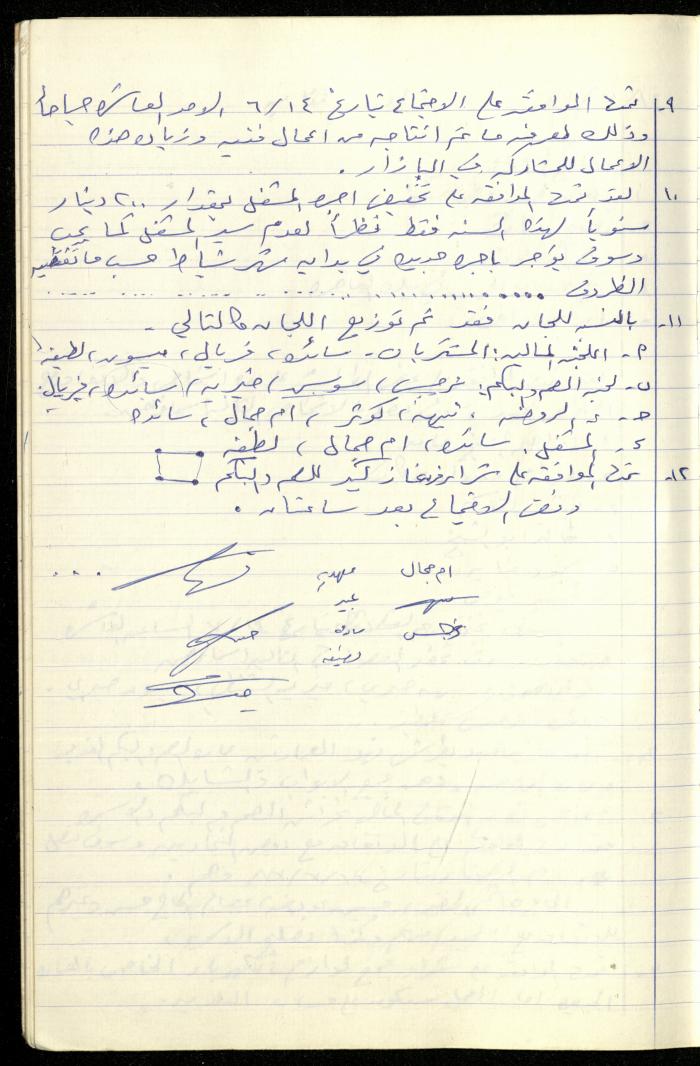 ٩- تمت الموافقة على الاجتماع بتاريخ ٦/١٤ الاحد العاشرة صباحاً
وذلك لمعرفة ما تم انتاجه من اعمال فنيه وزيادة هذه
الاعمال للمشاركه في البازار .
١٠- لقد تمت الموافقه على تخفيض اجرة المشغل بمقدار ٢٠٠ دينار
سنوياً لهذه السنه فقط نظراً لعدم سير المشغل كما يجب
وسوف يؤجر باجره جديده في بدايه شهر شباط حسب ما تقتضيه
الظروف
١١- بالنسبه للجان فقد تم توزيع اللجان كالتالي -
أ- اللجنه الماليه: المشتريات - سائده، فريال، ميسون، لطيفه
ب- لجنة الصم والبكم: نرجس، سوسن، خيريه، سائده، فريال
ج- الروضه ، نبيهه، كوثر، ام جمال، سائده
د- المشغل . سائده، ام جمال، لطيفه
١٢- تمت الموافقه على شراء غاز كبير للصم والبكم
وفض الاجتماع بعد ساعتان .
ام جمال مهديه
عبير
نرجس
لطيفه